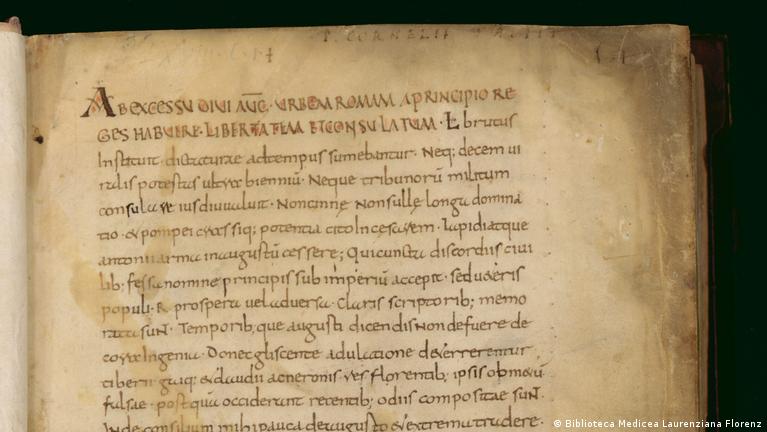 P. CORNELII
AB EXCESSU DIVI AUG. URBEM ROMAM A PRINCIPIO RE
GES HABUERE. LIBERTATEM ET CONSULATUM. L. brutus
Instituit. dictaturae ad tempus sumebantur. Neq; decem ui
ralis potestas ultra bienniū. Neque tribunorū militum
consulare ius diu ualuit. Non cinne Non sulle longa domina
tio. & pompei crassiq; potentia cito In cesarem. lapidi atque
antonii arma in augustū cessere; Qui cuncta discordiis ciui
lib; fessa nomine principis sub imperiū accepit. sed ueteris
populi. R. prospera uel aduersa. Claris scriptorib; memo
rata suN. Temporib; que augusti dicendis Non defuere de
cora Ingenia. Donec gliscente adulatione deterrerentur
tiberii gaiq; & claudii ac neronis res florentib; ipsis ob m&ū
fulsae. postquā occiderant recentib; odiis compositae suN.
Inde consilium mihi pauca de augusto & extrema tradere.
© Biblioteca Medicea Laurenziana Florenz